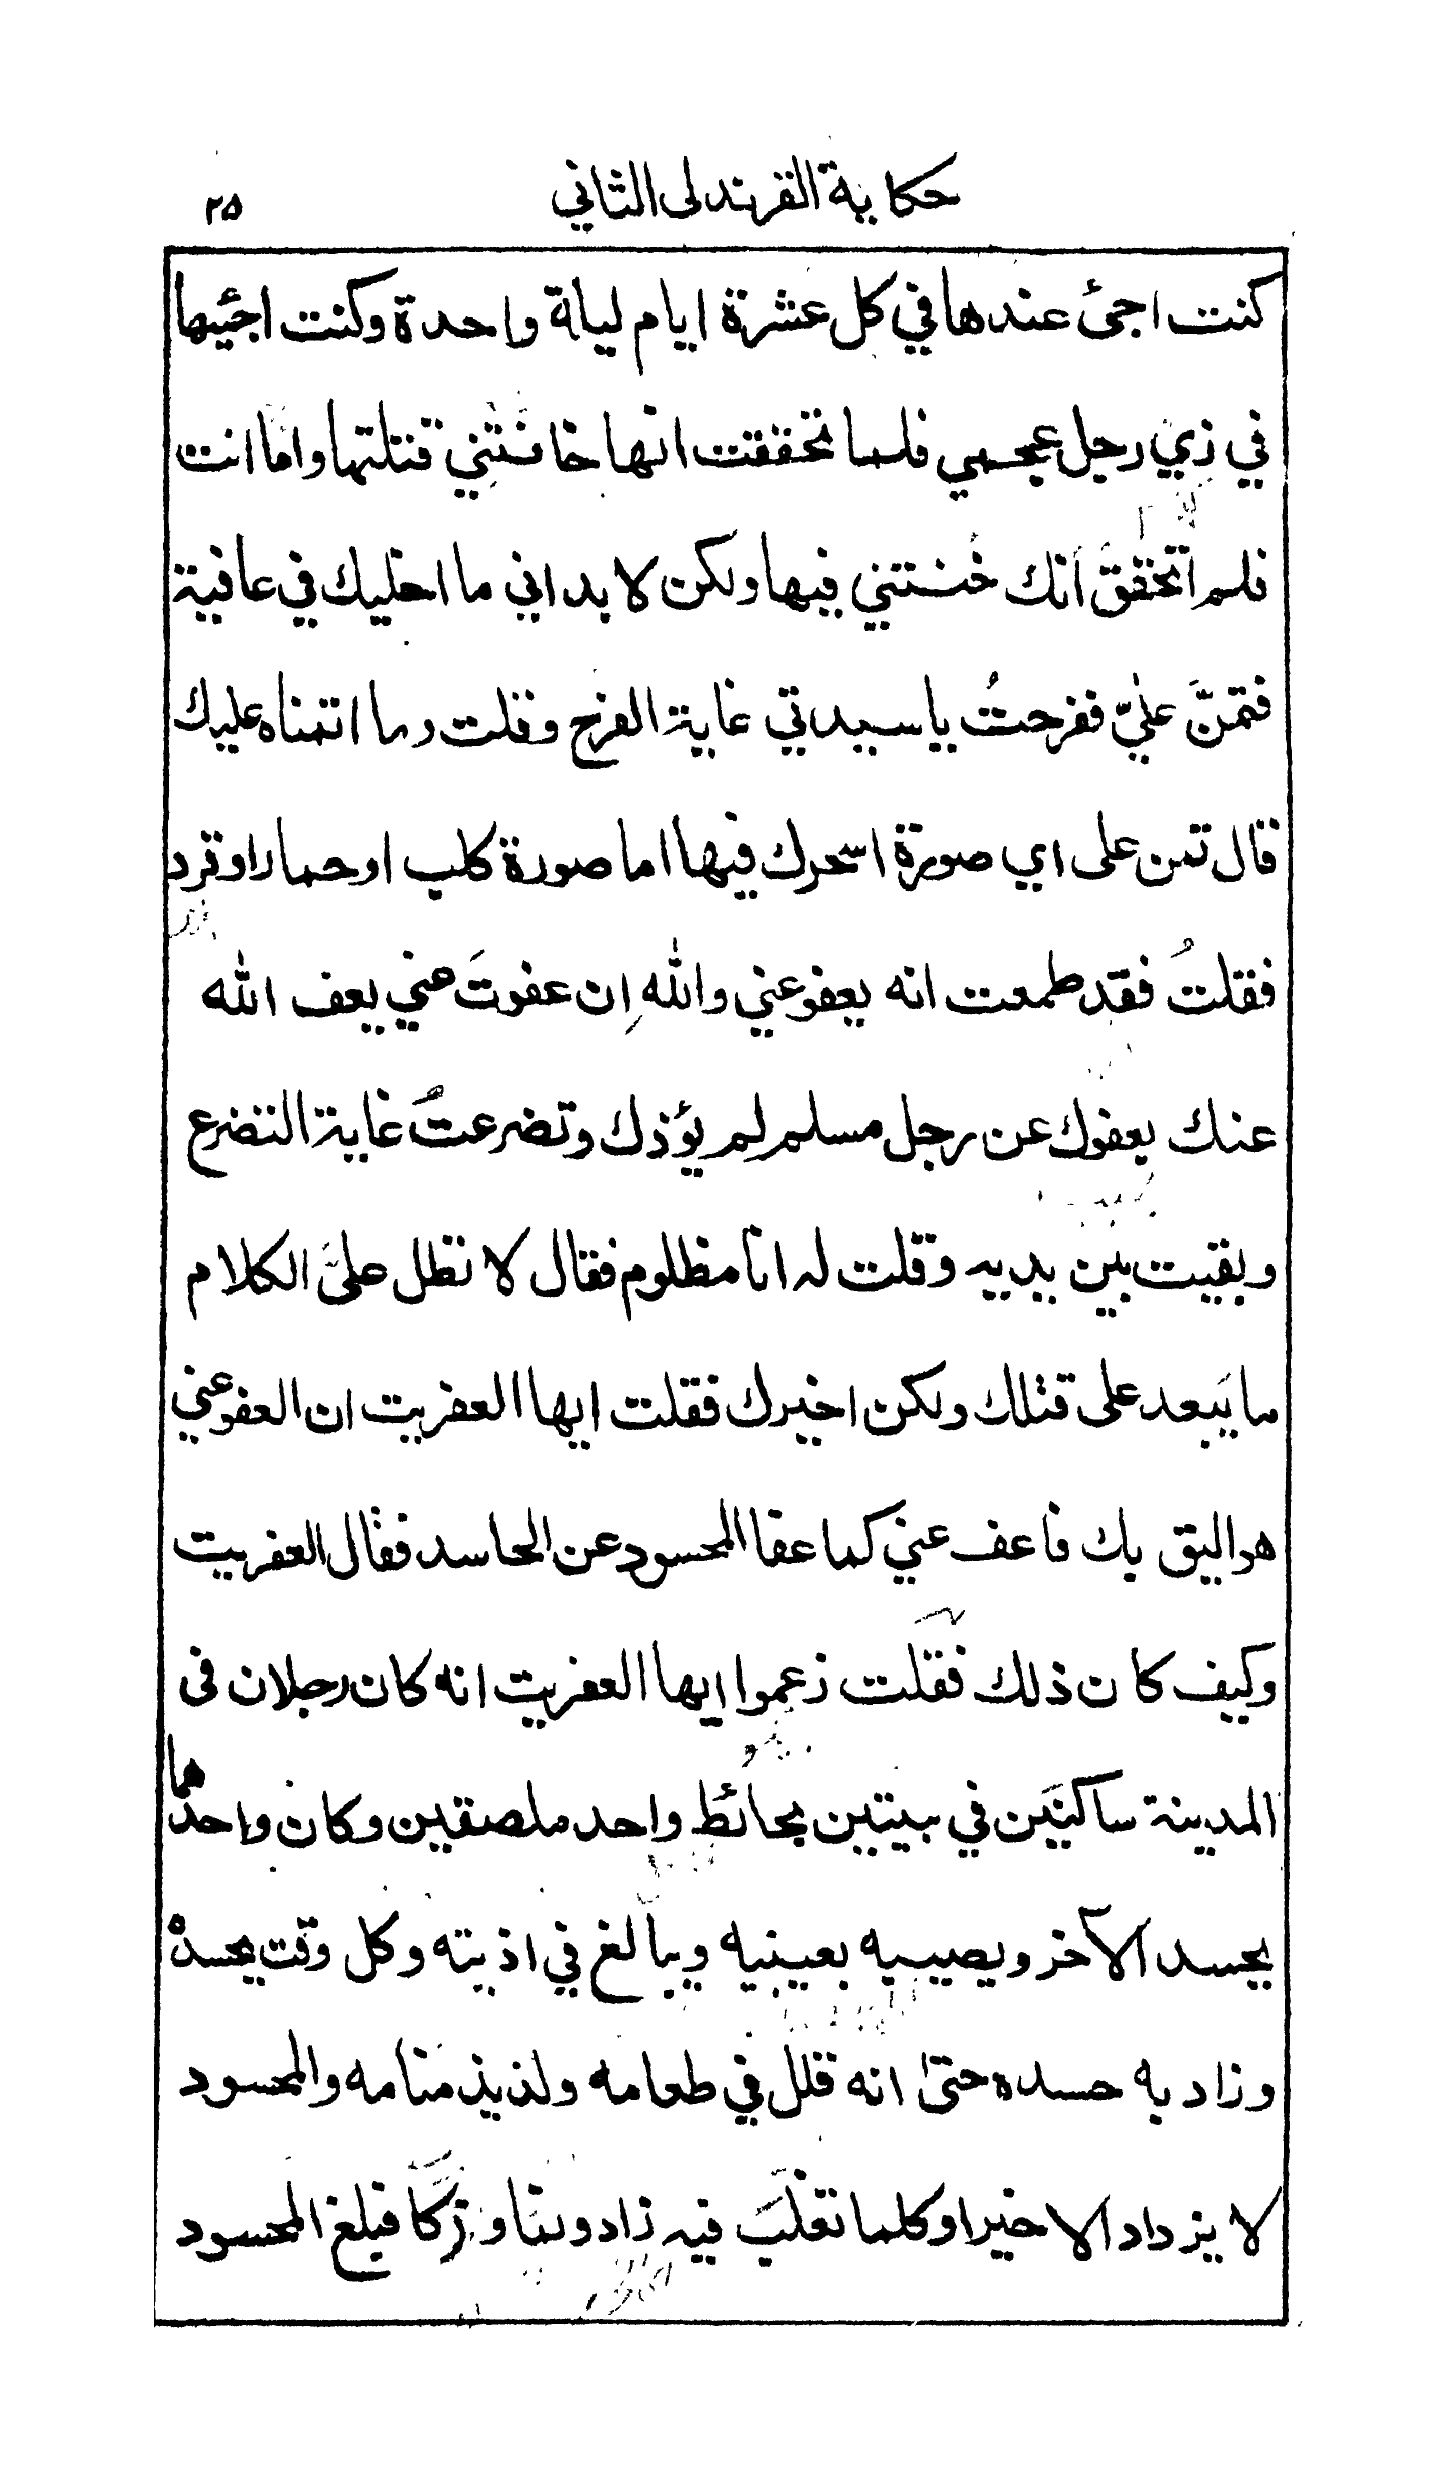 حكاية القرندلى الثاني
٢٥
كنت اجئ عندها في كل عشرة ايام ليلة واحدة وكنت اجئيها
في زي رجل عجمي فلما تحققت انها خانتني قتلتها واما انت
فلم اتحقق انك خنتني فيها ولكن لا بد اني ما اخليك في عافية
فتمنَّ عليّ ففرحتُ يا سيدتي غاية الفرح وقلت وما اتمناه عليك
قال تمن على اي صورة اسحرك فيها اما صورة كلب او حمار او قرد
فقلتُ فقد طمعت انه يعفو عني والله إن عفوتَ عني يعف الله
عنك بعفوك عن رجل مسلم لم يؤذك وتضرعتُ غاية التضرع
وبقيت بين يديه وقلت له انا مظلوم فقال لا تطل عليَّ الكلام
ما يَبعد على قتلك ولكن اخيرك فقلت ايها العفريت ان العفو عني
هو اليق بك فاعف عني كما عفا المحسود عن الحاسد فقال العفريت
وكيف كان ذلك فقلت زعموا ايها العفريت انه كان رجلان في
المدينة ساكنَين في بيتين بحائط واحد ملصقين وكان واحدهما
يحسد الآخر ويصيبه بعينيه ويبالغ في اذيته وكل وقت يحسده
وزاد به حسده حتى انه قلل في طعامه ولذيذ منامه والمحسود
لا يزداد الا خيرا وكلما تقلَّبَ فيه زاد ونما وزكا فبلغ المحسود